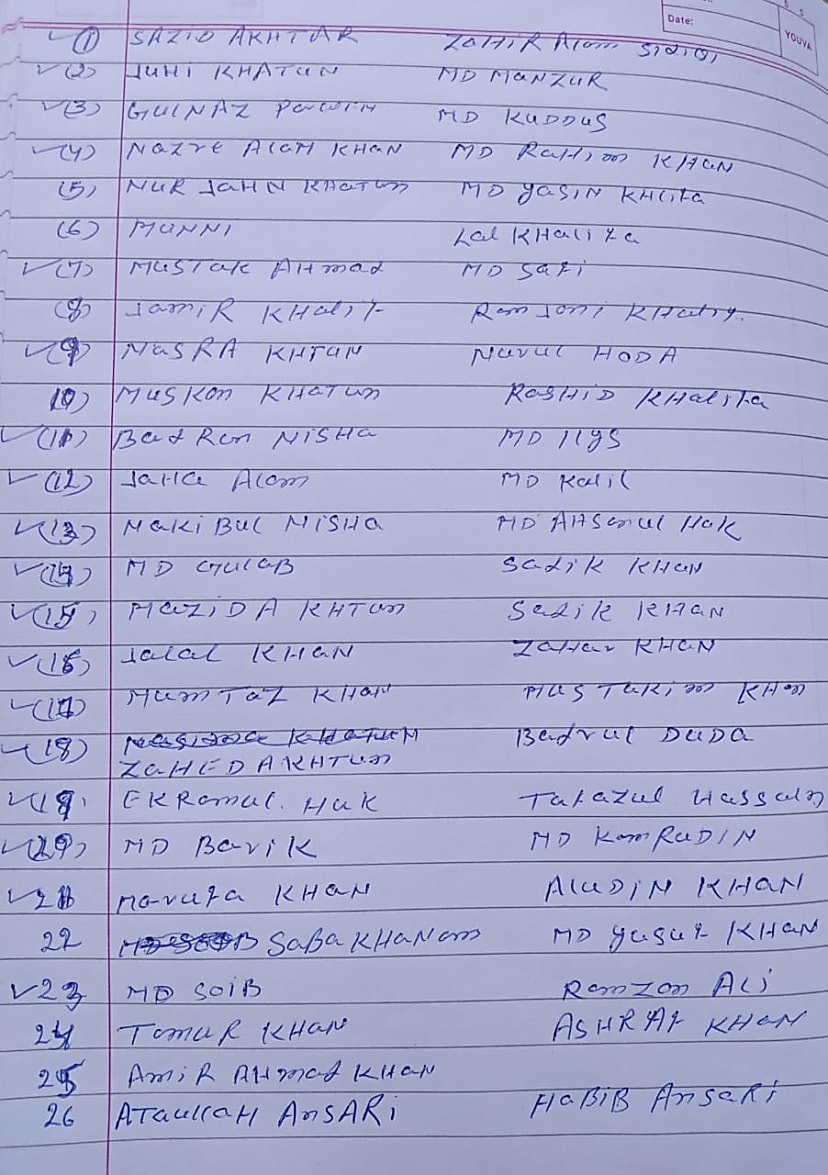 Date:
YOUVA
✓ (1) SAZID AKHTAR ZAHIR Alam
✓ (2) JUHI KHATUN MD MANZUR
✓ (3) GULNAZ Parwin MD KUDDUS
✓ (4) NAZRE ALAM KHAN MD Rahim KHAN
(5) NUR JAHN KHATUN MD YASIN KHlifa
(6) MUNNI Lal KHalifa
✓ (7) MUSTAK AHmad MD Safi
(8) Jamir KHalif Ramjani KHalif.
✓ (9) NASRA KHTUN Nurul HODA
10) MUSKAN KHATUN RASHID KHalifa
✓ (11) BadRun NISHA MD Ilys
✓ (12) JaHa Alam MD Kalil
✓ (13) NAKiBUL NISHA MD AHSanul Hak
✓ (14) MD GULAB Sadik KHAN
✓ (15) MAZIDA KHTUN Sadik KHAN
✓ (16) Jalal KHAN ZaHar KHAN
✓ (17) MUMTAZ KHAN MUSTAKim KHAN
✓ (18) Badrul DUDA
ZAHEDA KHTUN
✓ 19. EKRamul. HUK Tafazul Hassain
✓ (20) MD Barik MD KamRUDIN
✓ 21 Marufa KHAN AlUDIN KHAN
22 SABA KHANam MD Yusuf KHAN
✓ 23 MD SOIB Ramzan Ali
24 TAMUR KHAN ASHRAF KHAN
25 AMIR AHmad KHAN
26 ATAULLAH ANSARI HABIB Ansari